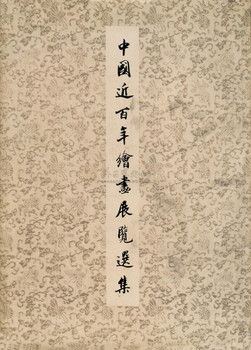 中國近百年繪畫展覽選集